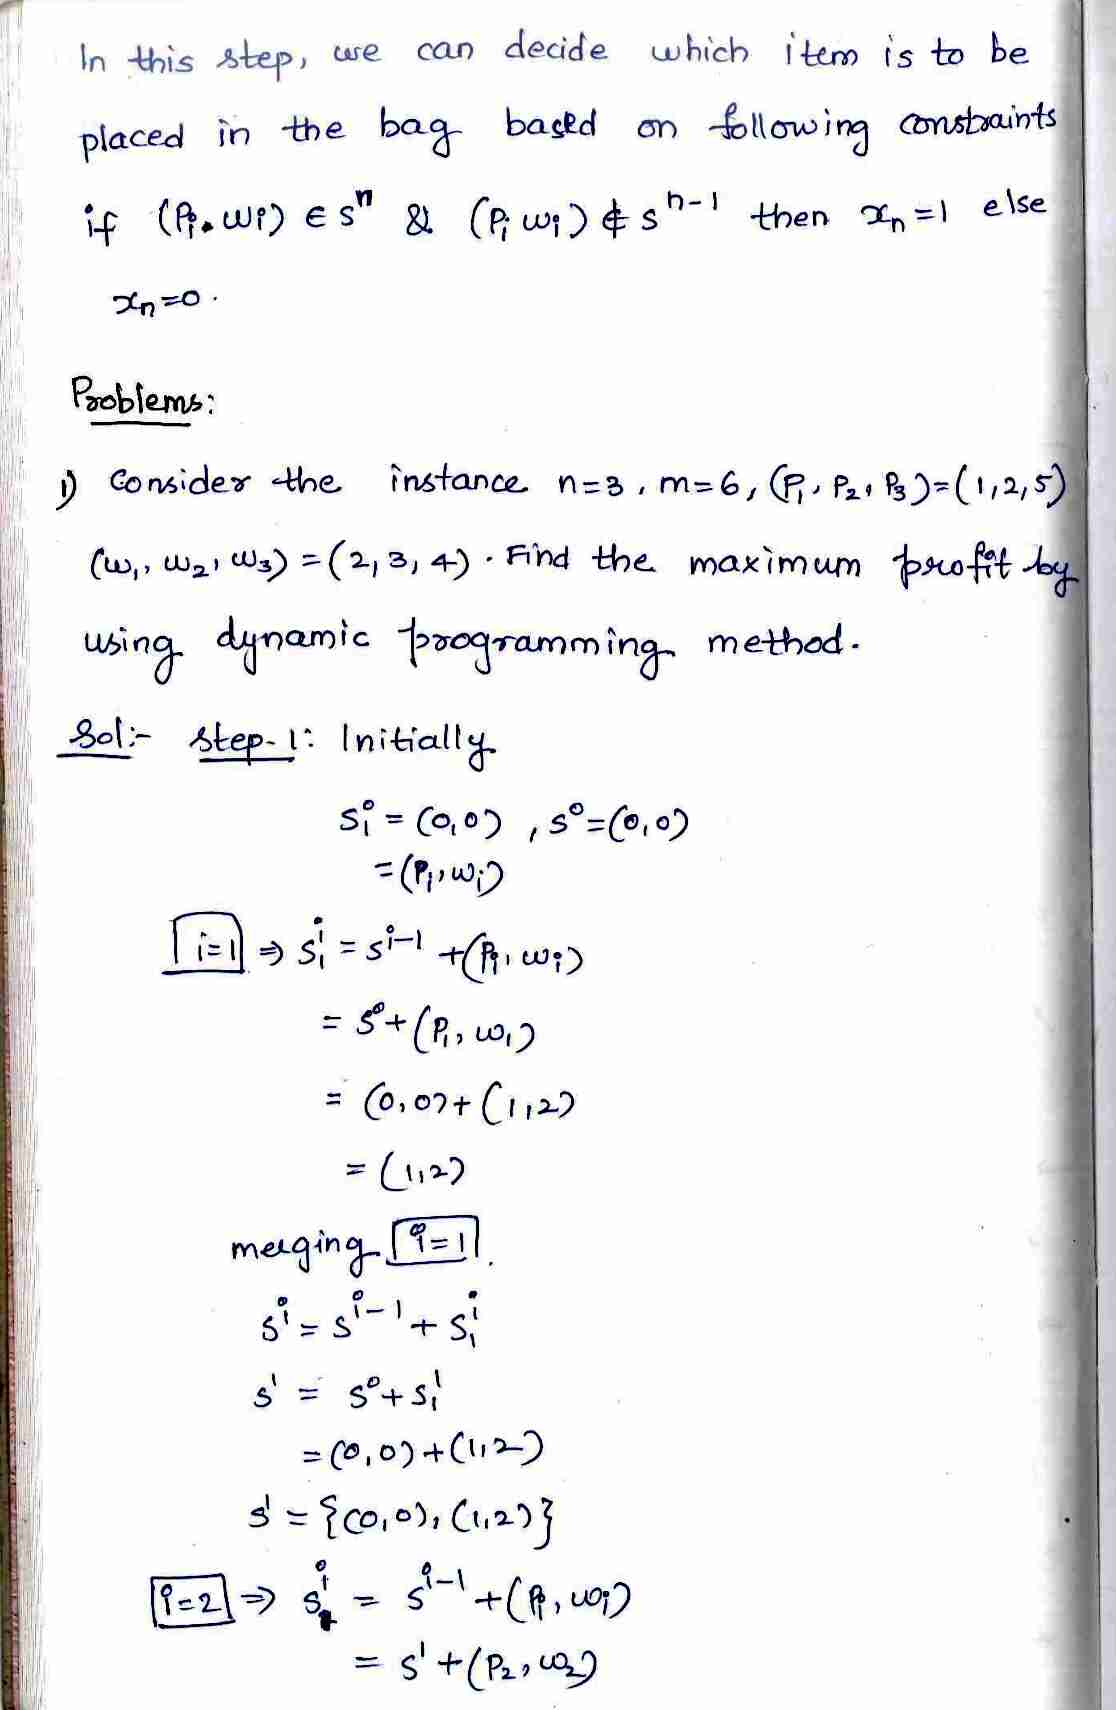 In this step, we can decide which item is to be
placed in the bag based on following constraints
if (Pi, wi) ∈ sⁿ & (Pi wi) ∉ sⁿ⁻¹ then xₙ=1 else
xₙ=0.
Problems:
1) Consider the instance n=3, m=6, (P₁, P₂, P₃)=(1,2,5)
(w₁, w₂, w₃) = (2,3,4). Find the maximum profit by
using dynamic programming method.
Sol:- step-1: Initially
s₁⁰ = (0,0), s⁰=(0,0)
=(Pi, wi)
i=1 ⇒ s₁ⁱ = sⁱ⁻¹ +(Pi, wi)
= s⁰+(P₁, w₁)
= (0,0)+(1,2)
= (1,2)
merging i=1.
sⁱ = sⁱ⁻¹ + s₁ⁱ
s¹ = s⁰+s₁¹
=(0,0)+(1,2)
s¹ = {(0,0), (1,2)}
i=2 ⇒ s₁ⁱ = sⁱ⁻¹ +(Pi, wi)
= s¹+(P₂, w₂)